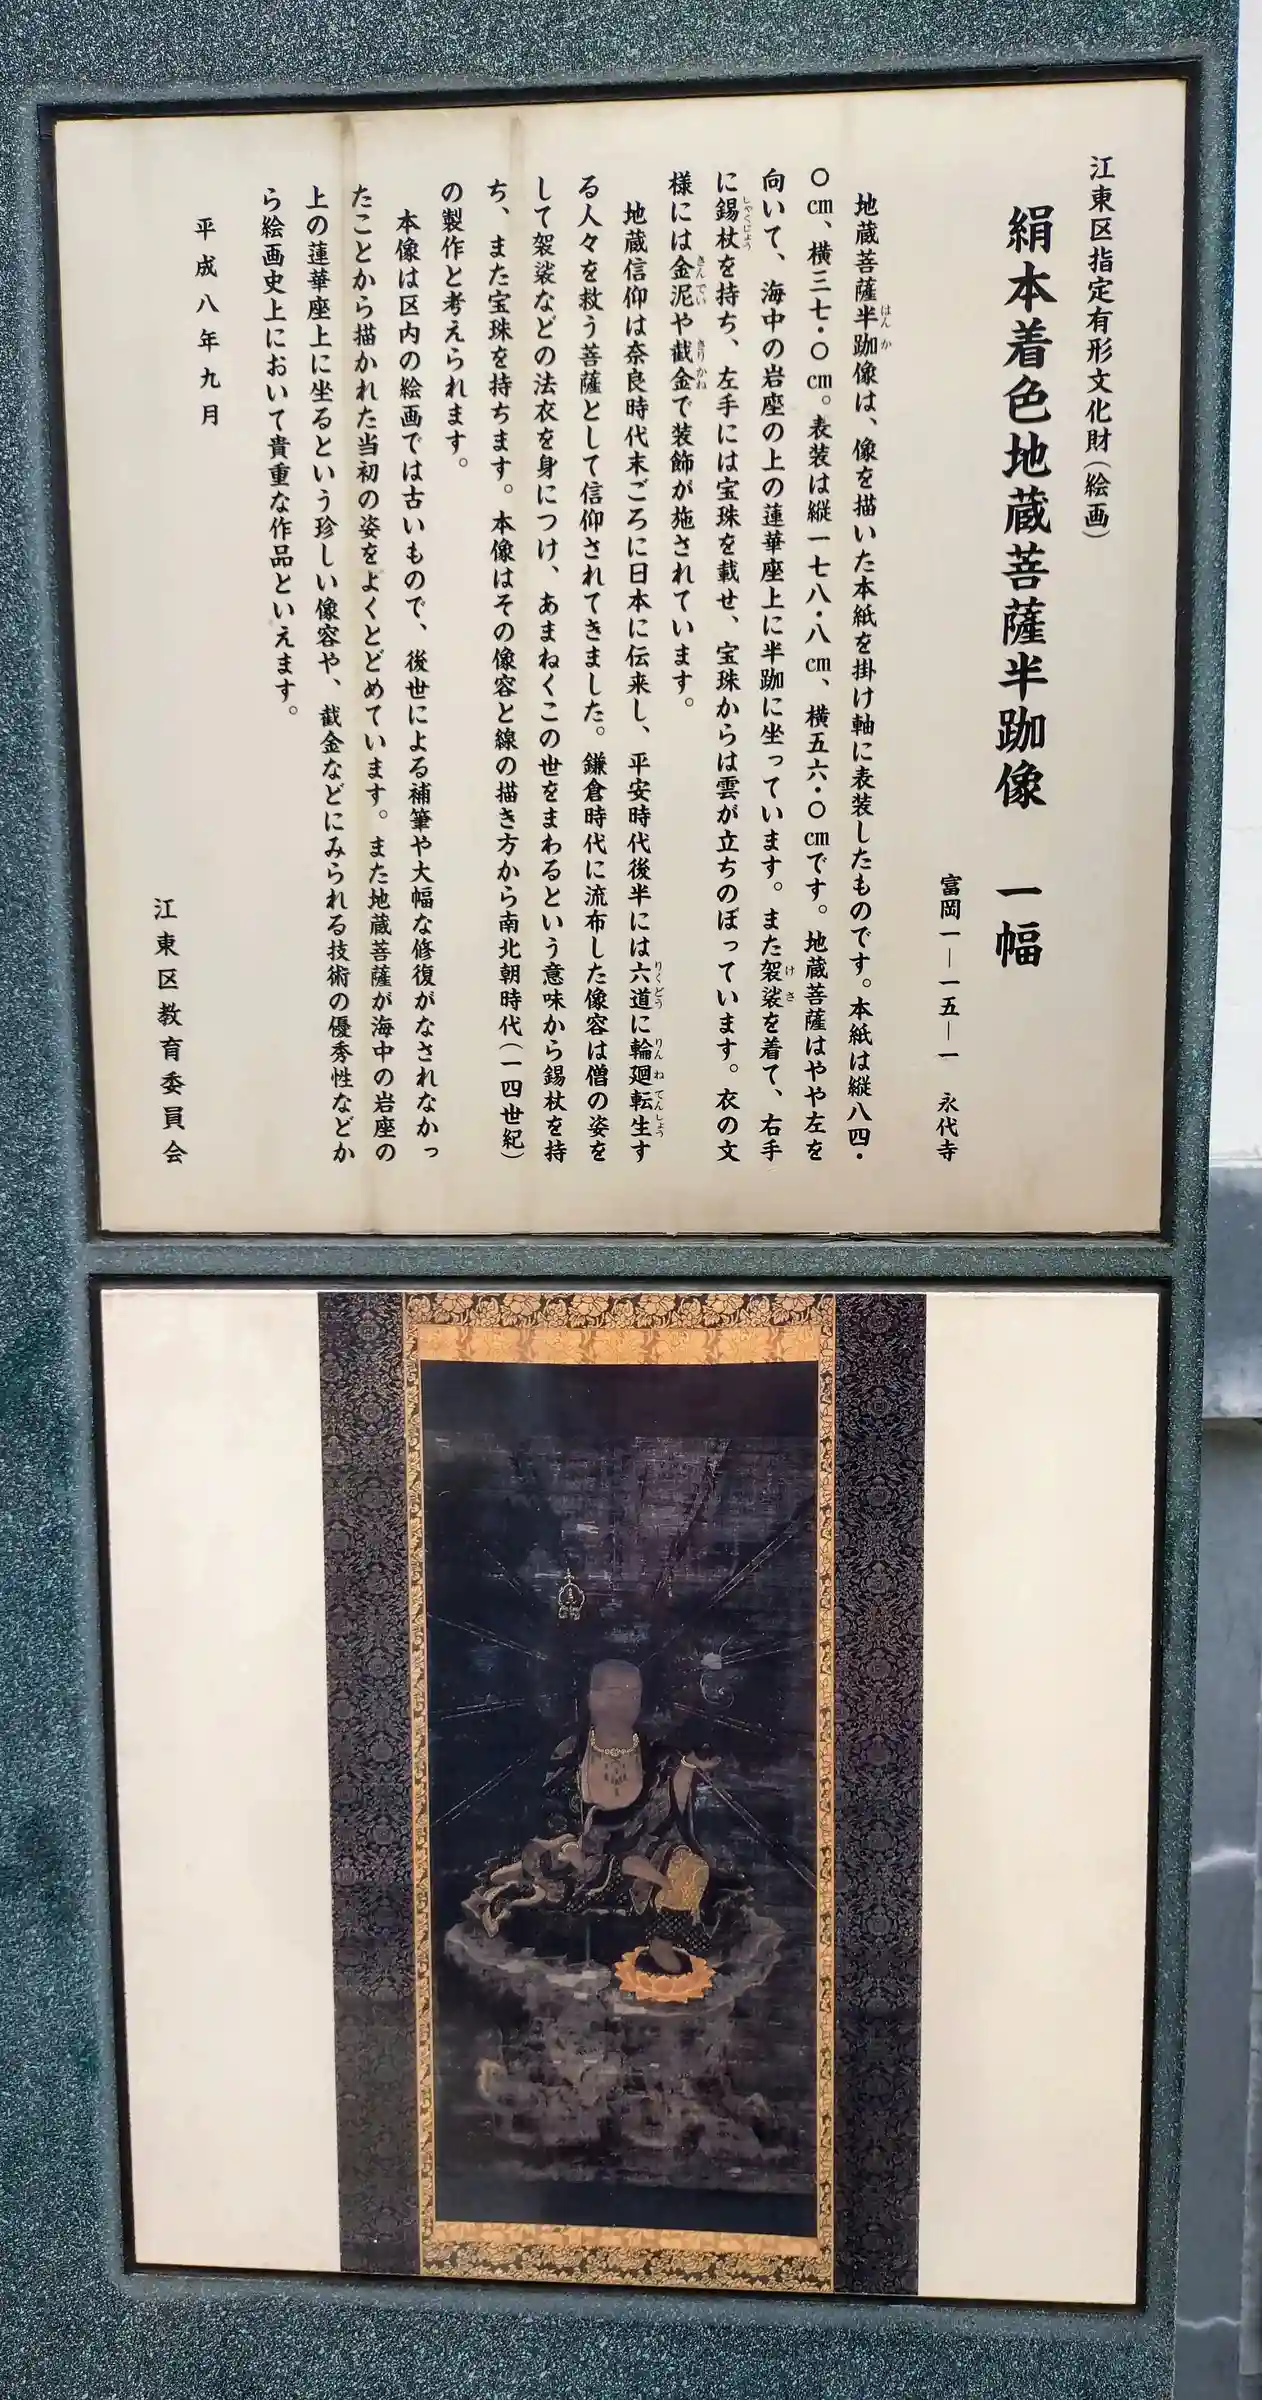 江東区指定有形文化財(絵画)
絹本着色地蔵菩薩半跏像 一幅
富岡一―一五―一 永代寺
地蔵菩薩半跏像は、像を描いた本紙を掛け軸に表装したものです。本紙は縦八四・
はんか
〇㎝、横三七・〇㎝。表装は縦一七八・八㎝、横五六・〇㎝です。地蔵菩薩はやや左を
向いて、海中の岩座の上の蓮華座上に半跏に坐っています。また袈裟を着て、右手
けさ
に錫杖を持ち、左手には宝珠を載せ、宝珠からは雲が立ちのぼっています。衣の文
しゃくじょう
様には金泥や截金で装飾が施されています。
きんでい きりかね
地蔵信仰は奈良時代末ごろに日本に伝来し、平安時代後半には六道に輪廻転生す
りくどう りんねてんしょう
る人々を救う菩薩として信仰されてきました。鎌倉時代に流布した像容は僧の姿を
して袈裟などの法衣を身につけ、あまねくこの世をまわるという意味から錫杖を持
ち、また宝珠を持ちます。本像はその像容と線の描き方から南北朝時代(一四世紀)
の製作と考えられます。
本像は区内の絵画では古いもので、後世による補筆や大幅な修復がなされなかっ
たことから描かれた当初の姿をよくとどめています。また地蔵菩薩が海中の岩座の
上の蓮華座上に坐るという珍しい像容や、截金などにみられる技術の優秀性などか
ら絵画史上において貴重な作品といえます。
平成八年九月
江東区教育委員会